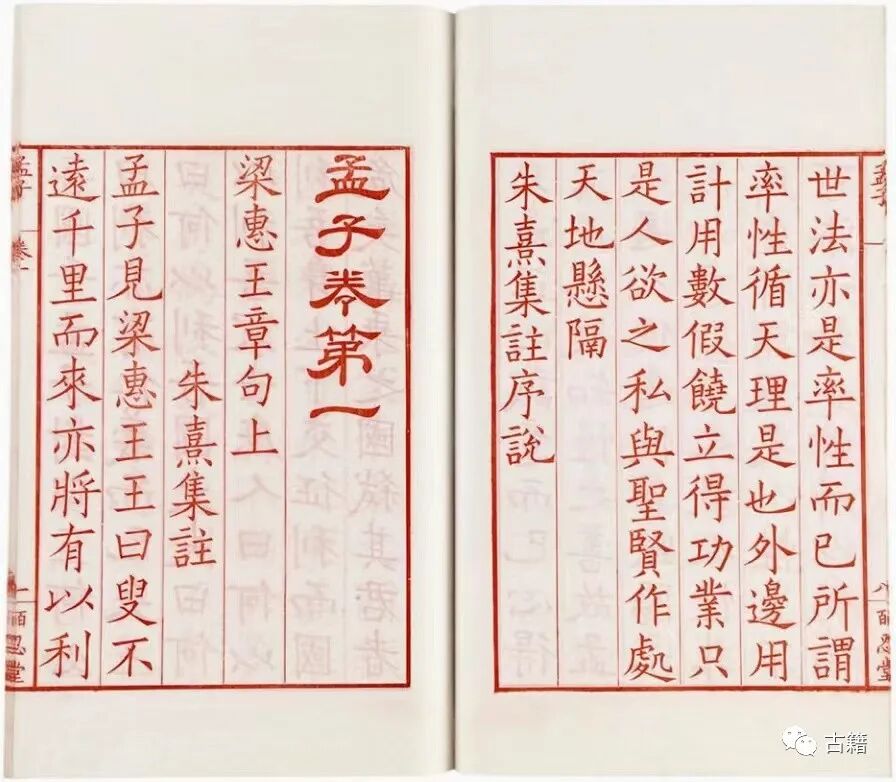 世法亦是率性而已所謂
率性循天理是也外邊用
計用數假饒立得功業只
是人欲之私與聖賢作處
天地懸隔
朱熹集註序說
孟子
孟子卷第一
梁惠王章句上
朱熹集註
孟子見梁惠王王曰叟不
遠千里而來亦將有以利
孟子
卷一
一
古籍